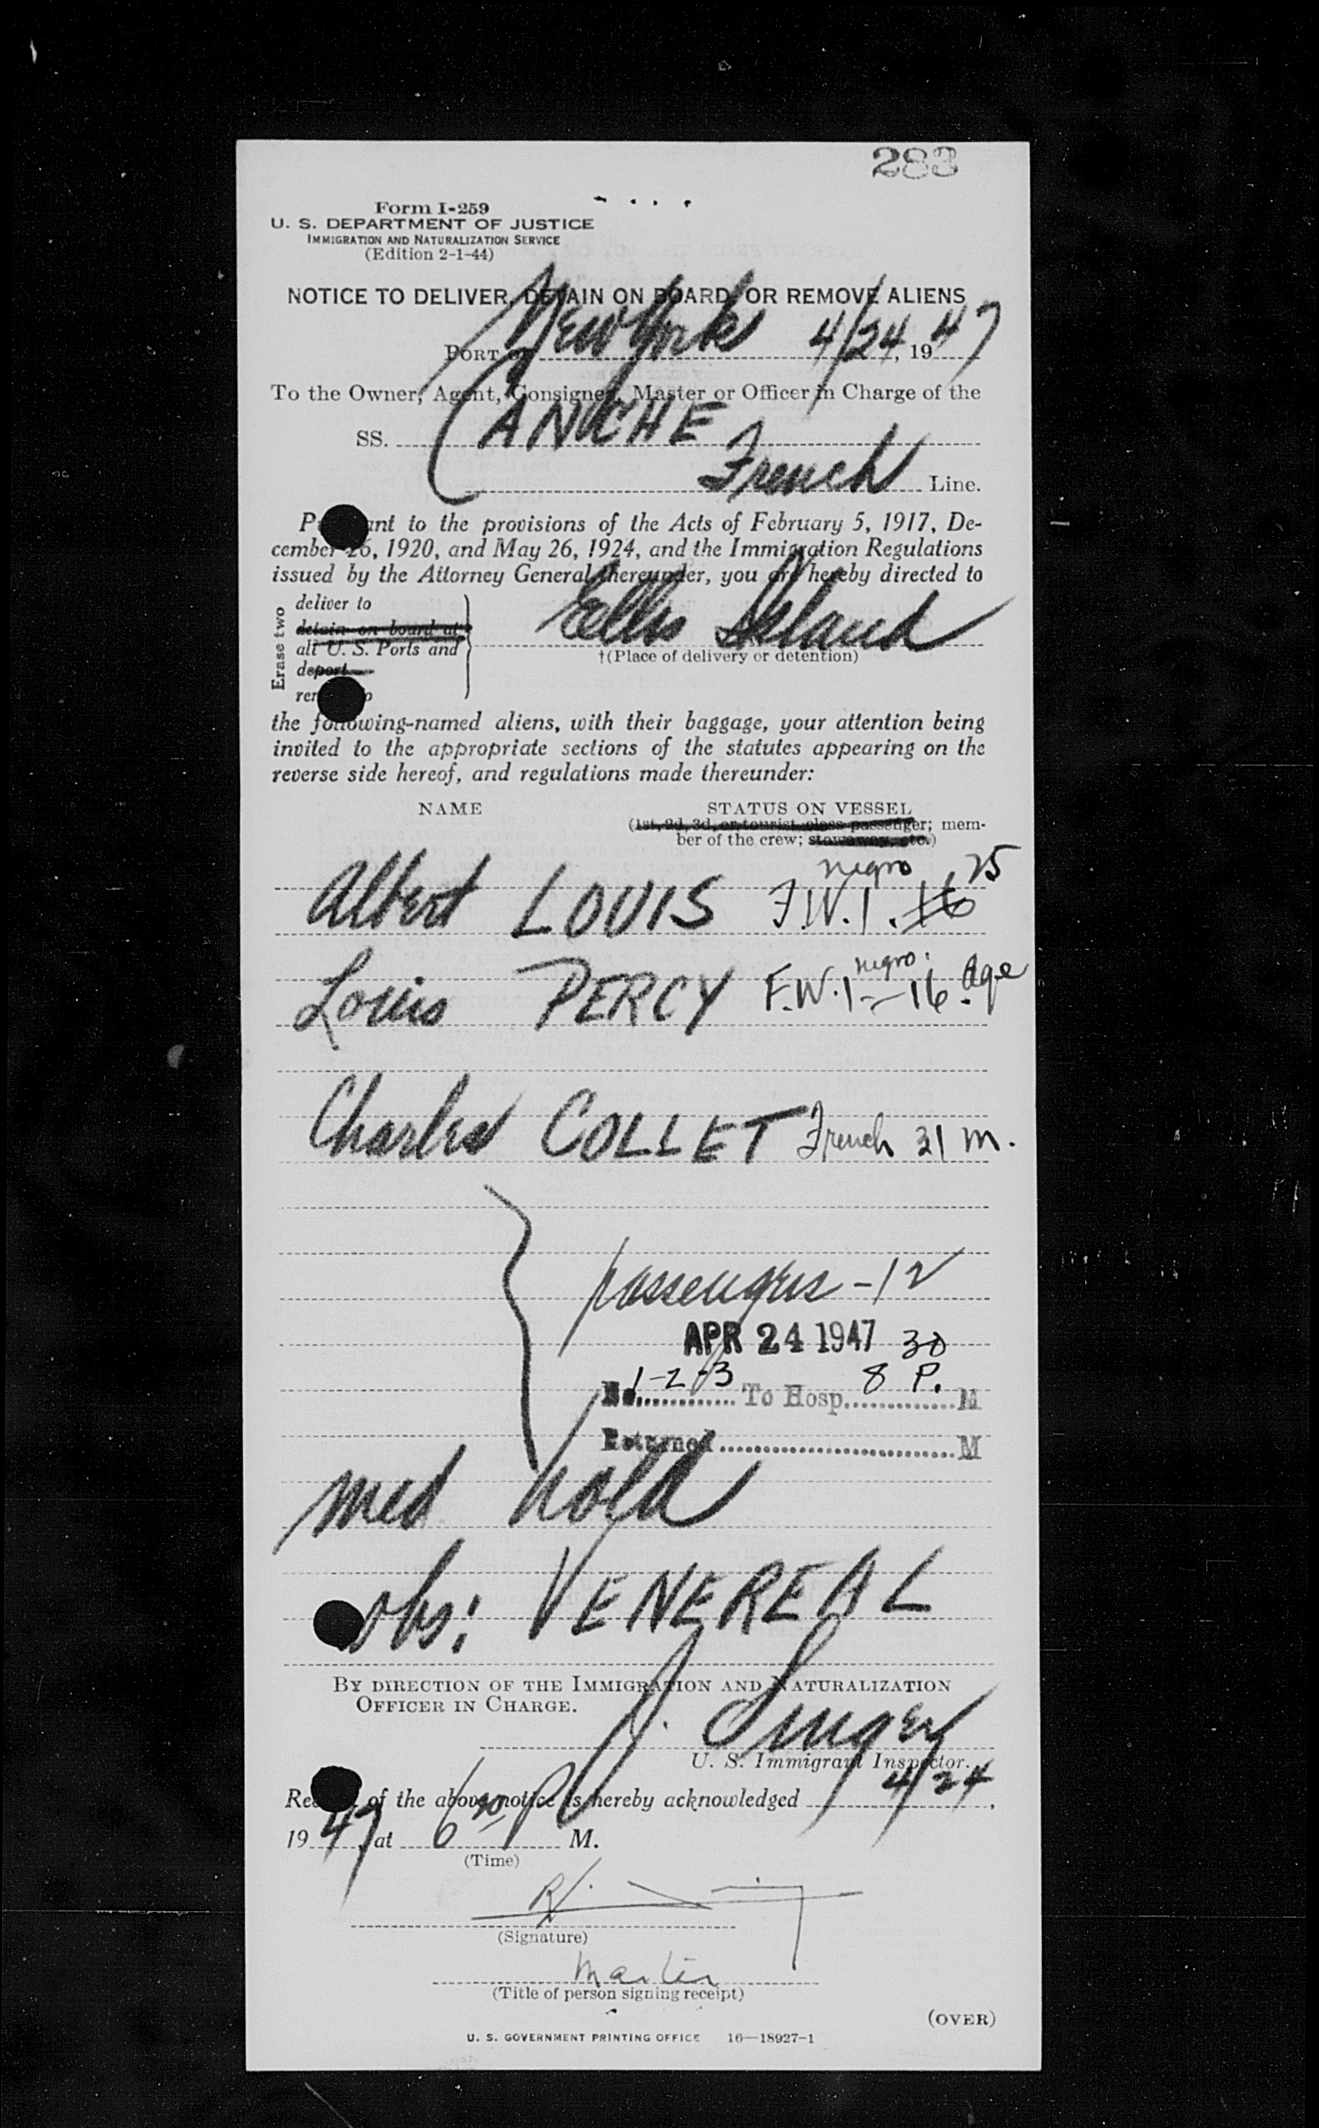 283
Form I-259
U. S. DEPARTMENT OF JUSTICE
IMMIGRATION AND NATURALIZATION SERVICE
(Edition 2-1-44)
NOTICE TO DELIVER, DETAIN ON BOARD, OR REMOVE ALIENS
PORT OF New York 4/24, 1947
To the Owner, Agent, Consignee, Master or Officer in Charge of the
SS. CANCHE
French Line.
Pursuant to the provisions of the Acts of February 5, 1917, De-
cember 26, 1920, and May 26, 1924, and the Immigration Regulations
issued by the Attorney General thereunder, you are hereby directed to
Erase two
deliver to
detain on board at
all U. S. Ports and
deport
remove to
Ellis Island
†(Place of delivery or detention)
the following-named aliens, with their baggage, your attention being
invited to the appropriate sections of the statutes appearing on the
reverse side hereof, and regulations made thereunder:
NAME STATUS ON VESSEL
(1st, 2d, 3d, or tourist class passenger; mem-
ber of the crew; stowaway, etc.)
negro
Albert LOUIS F.W.I. 16 25
negro.
Louis PERCY F.W.I - 16 Age
Charles COLLET French 31 m.
passengers - 12
APR 24 1947
No. 1-2-3 To Hosp. 8 30 P. M
Returned M
Med hold
obs: VENEREAL
BY DIRECTION OF THE IMMIGRATION AND NATURALIZATION
OFFICER IN CHARGE.
J. Singer
U. S. Immigrant Inspector.
Receipt of the above notice is hereby acknowledged 4/24,
1947, at 6 P M.
(Time)
(Signature)
Master
(Title of person signing receipt)
(OVER)
U. S. GOVERNMENT PRINTING OFFICE 16—18927-1